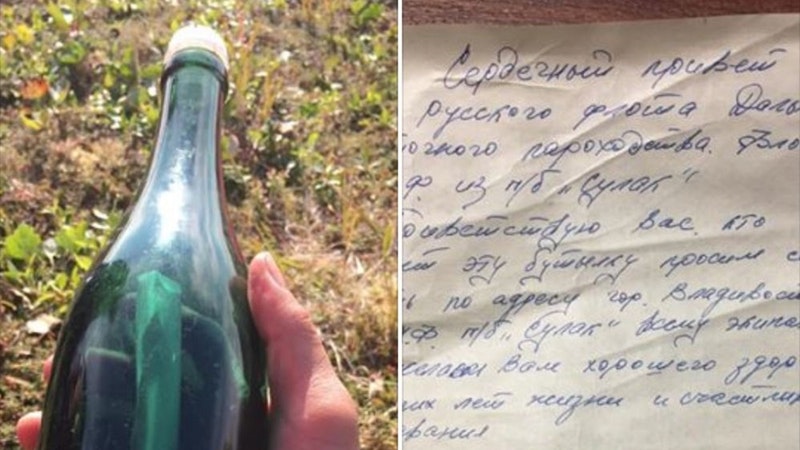 Сердечный привет
русского флота Даль
точного пароходства.
ф. из п/б „Сулак“
ветствую Вас. кто
ет эту бутылку просим с
ь по адресу гор. Владивос
ДФ п/б „Сулак“ всему экипа
желаю Вам хорошего здор
гих лет жизни и счастлив
вания